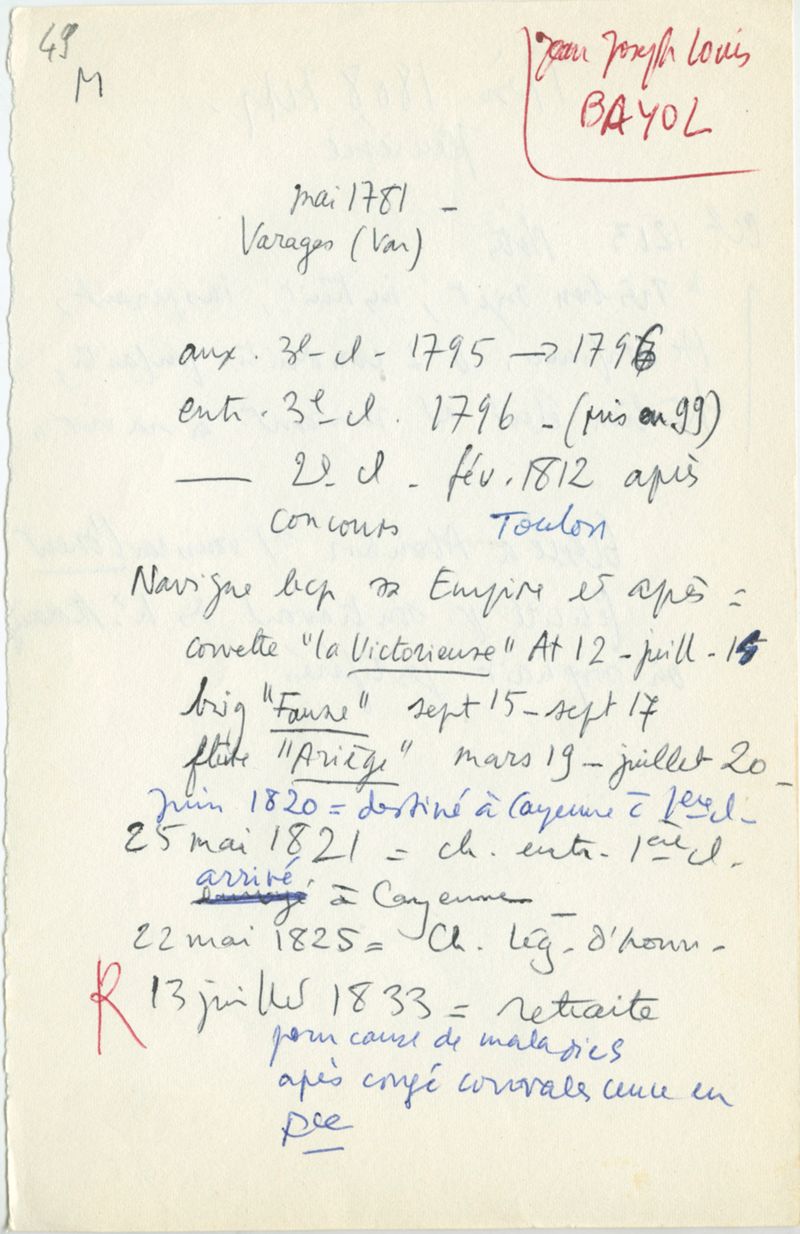 49
M
Jean Joseph Louis
BAYOL
mai 1781 -
Varages (Var)
aux. 3e cl - 1795 → 1796
entr. 3e cl. 1796 - (pris en 99)
— 2e cl - fév. 1812 après
concours Toulon
Navigue bcp ss Empire et après =
corvette "la Victorieuse" At 12 - juill - 15
brig "Faune" sept 15 - sept 17
flûte "Ariège" mars 19 - juillet 20 -
Juin 1820 = destiné à Cayenne c 1ere cl -
25 mai 1821 = ch. entr. 1ère cl.
arrivé
envoyé à Cayenne -
22 mai 1825 = Ch. Lég. d'honn -
R 13 juillet 1833 = retraite
pour cause de maladies
après congé convalescence en
Fce